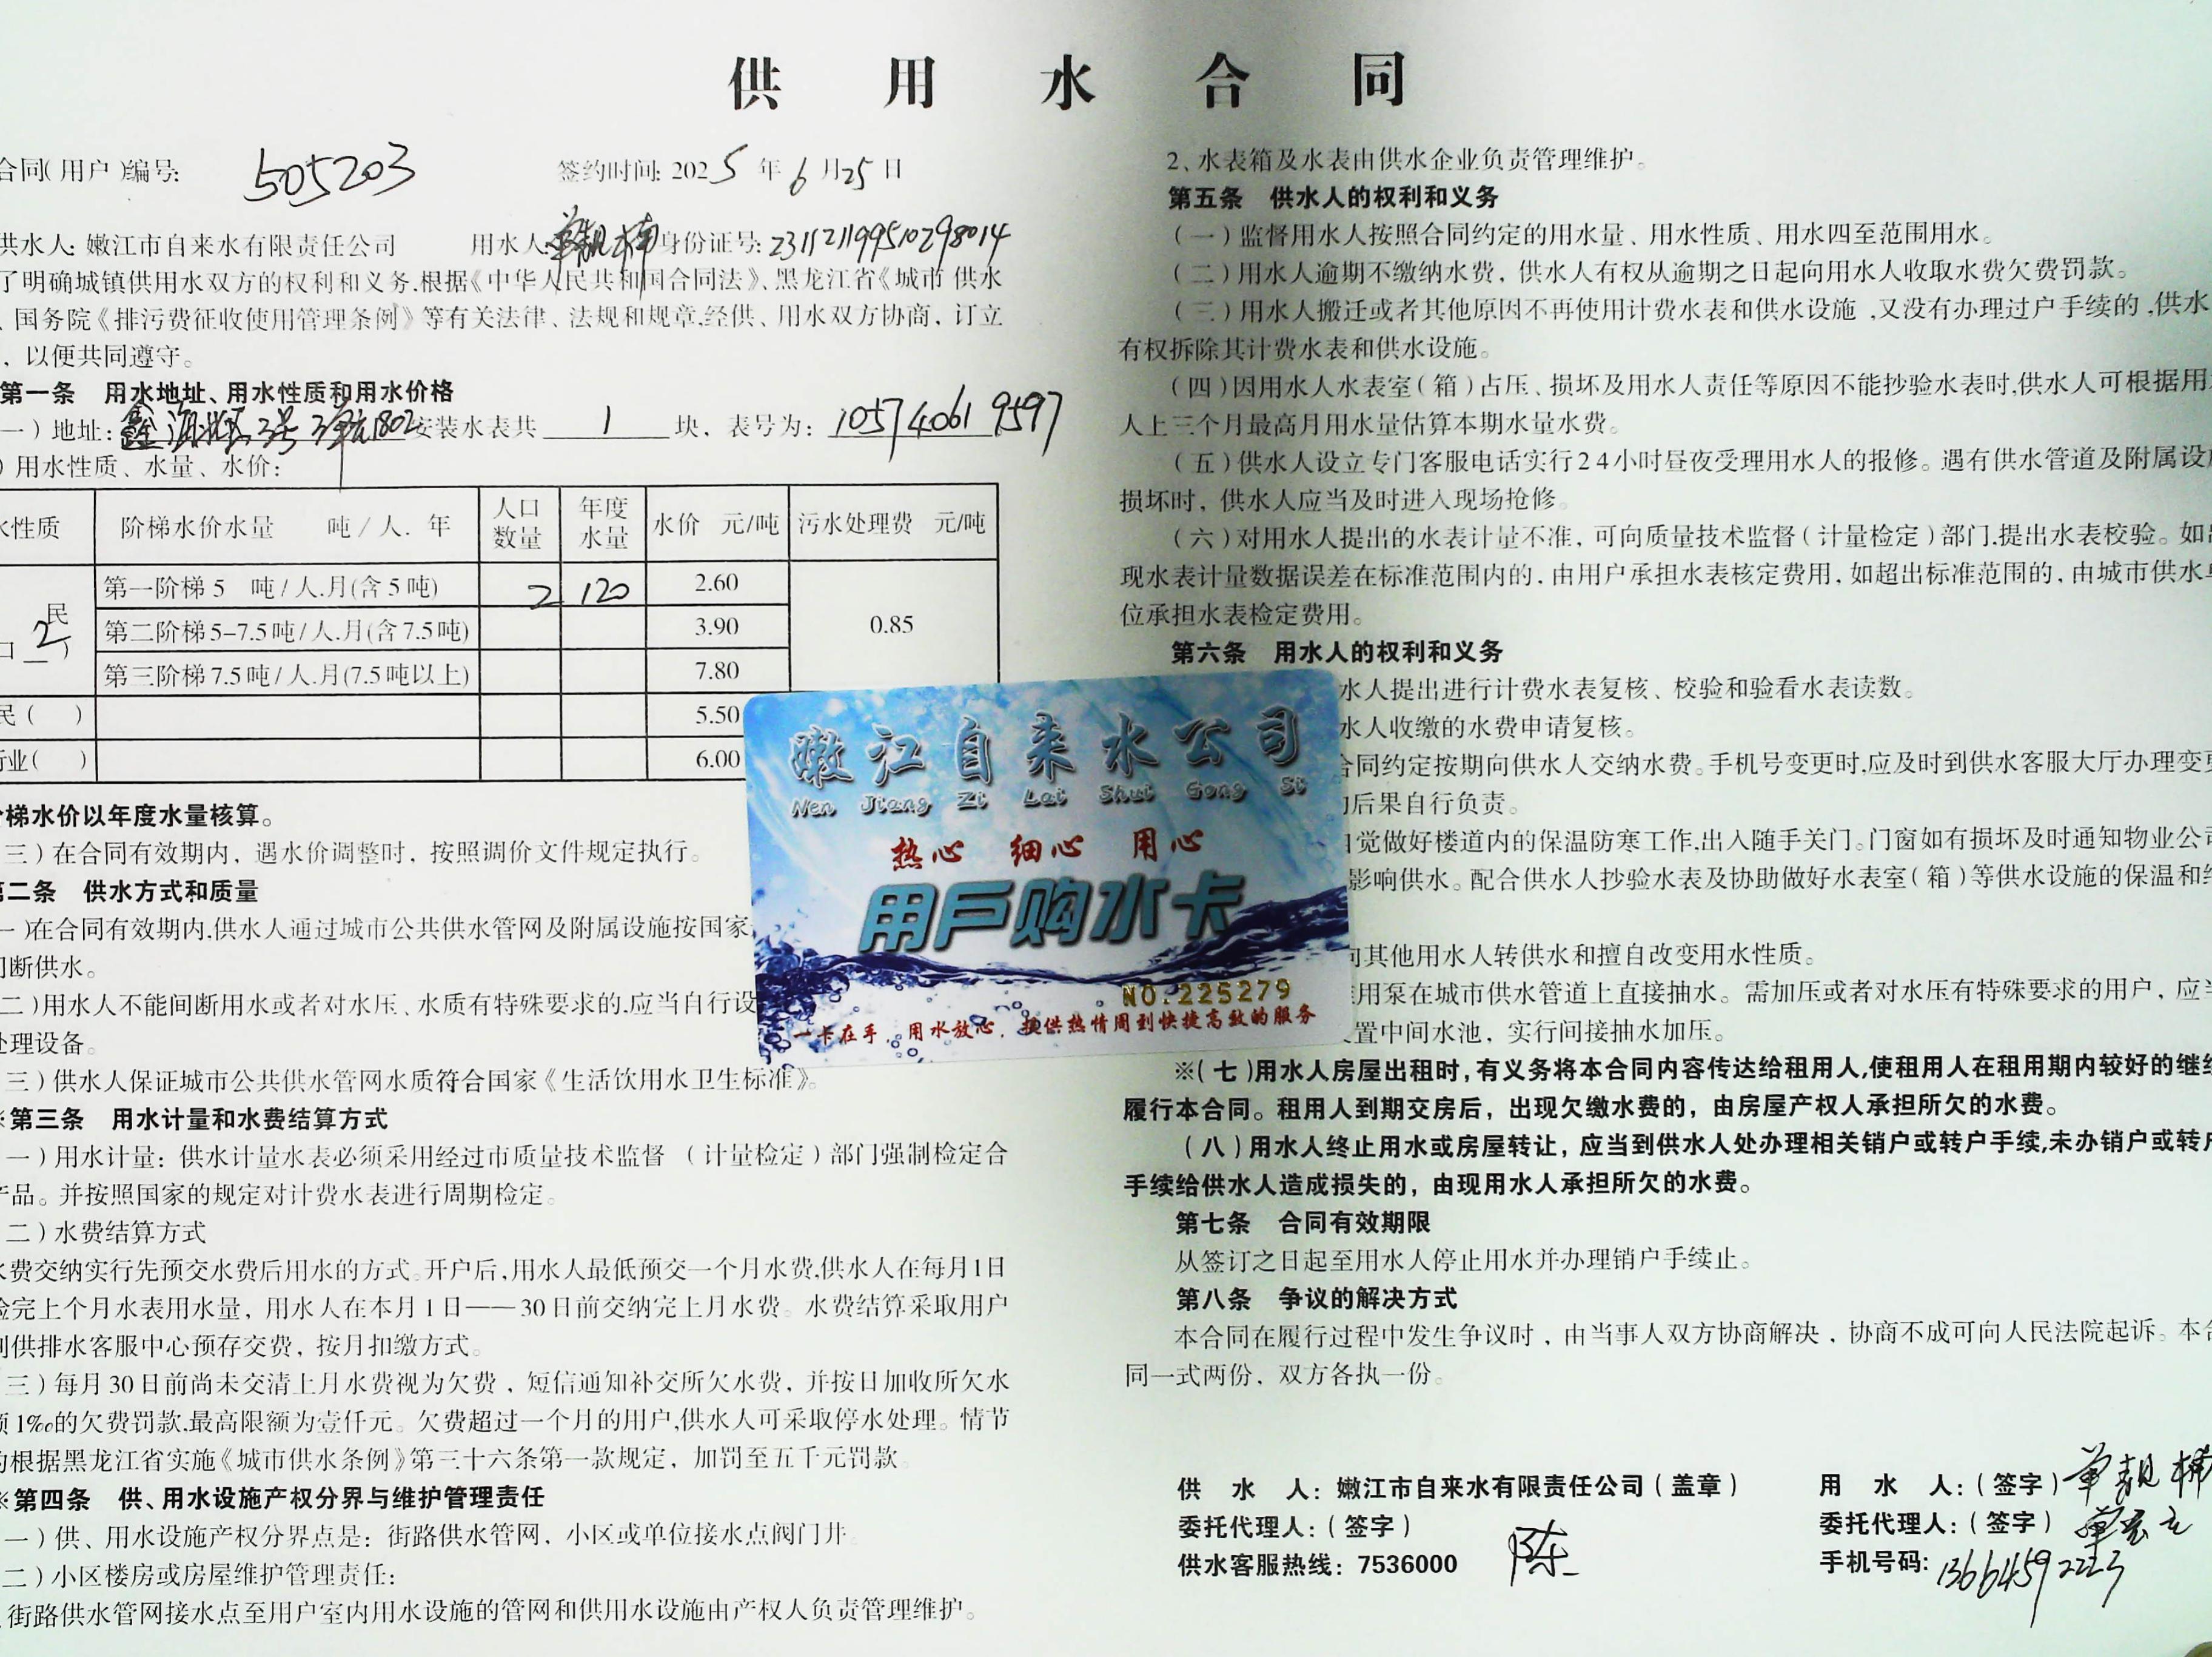 供用水合同
合同(用户)编号: 505203 签约时间: 2025年6月25日
供水人: 嫩江市自来水有限责任公司 用水人: 单靓楠 身份证号: 231121199510298014
了明确城镇供用水双方的权利和义务.根据《中华人民共和国合同法》、黑龙江省《城市 供水
、国务院《排污费征收使用管理条例》等有关法律、法规和规章,经供、用水双方协商, 订立
, 以便共同遵守。
第一条 用水地址、用水性质和用水价格
一) 地址: 3号 1802 安装水表共 1 块, 表号为: 105740619597
) 用水性质、水量、水价:
水性质 阶梯水价水量 吨/人. 年 人口数量 年度水量 水价 元/吨 污水处理费 元/吨
民
口 2 )
第一阶梯 5 吨/人.月(含 5 吨) 2 120 2.60
第二阶梯 5-7.5吨/人.月(含 7.5吨) 3.90 0.85
第三阶梯 7.5吨/人.月(7.5吨以上) 7.80
民( ) 5.50
行业( ) 6.00
阶梯水价以年度水量核算。
三) 在合同有效期内, 遇水价调整时, 按照调价文件规定执行。
第二条 供水方式和质量
一)在合同有效期内,供水人通过城市公共供水管网及附属设施按国家
间断供水。
二)用水人不能间断用水或者对水压、水质有特殊要求的,应当自行设
处理设备。
三)供水人保证城市公共供水管网水质符合国家《生活饮用水卫生标准》。
※第三条 用水计量和水费结算方式
一) 用水计量: 供水计量水表必须采用经过市质量技术监督 (计量检定) 部门强制检定合
产品。并按照国家的规定对计费水表进行周期检定。
二) 水费结算方式
水费交纳实行先预交水费后用水的方式。开户后,用水人最低预交一个月水费,供水人在每月1日
验完上个月水表用水量, 用水人在本月 1 日——30 日前交纳完上月水费。水费结算采取用户
到供排水客服中心预存交费, 按月扣缴方式。
三) 每月 30 日前尚未交清上月水费视为欠费 , 短信通知补交所欠水费, 并按日加收所欠水
额 1‰的欠费罚款,最高限额为壹仟元。欠费超过一个月的用户,供水人可采取停水处理。情节
的根据黑龙江省实施《城市供水条例》第三十六条第一款规定, 加罚至五千元罚款。
※第四条 供、用水设施产权分界与维护管理责任
一) 供、用水设施产权分界点是: 街路供水管网, 小区或单位接水点阀门井。
二) 小区楼房或房屋维护管理责任:
、街路供水管网接水点至用户室内用水设施的管网和供用水设施由产权人负责管理维护。
2、水表箱及水表由供水企业负责管理维护。
第五条 供水人的权利和义务
(一) 监督用水人按照合同约定的用水量、用水性质、用水四至范围用水。
(二) 用水人逾期不缴纳水费, 供水人有权从逾期之日起向用水人收取水费欠费罚款。
(三) 用水人搬迁或者其他原因不再使用计费水表和供水设施 ,又没有办理过户手续的 ,供水
有权拆除其计费水表和供水设施。
(四)因用水人水表室(箱)占压、损坏及用水人责任等原因不能抄验水表时,供水人可根据用水
人上三个月最高月用水量估算本期水量水费。
(五) 供水人设立专门客服电话实行24小时昼夜受理用水人的报修。遇有供水管道及附属设施
损坏时, 供水人应当及时进入现场抢修。
(六) 对用水人提出的水表计量不准, 可向质量技术监督(计量检定)部门.提出水表校验。如出
现水表计量数据误差在标准范围内的, 由用户承担水表核定费用, 如超出标准范围的, 由城市供水单
位承担水表检定费用。
第六条 用水人的权利和义务
水人提出进行计费水表复核、校验和验看水表读数。
水人收缴的水费申请复核。
合同约定按期向供水人交纳水费。手机号变更时,应及时到供水客服大厅办理变更
的后果自行负责。
自觉做好楼道内的保温防寒工作,出入随手关门。门窗如有损坏及时通知物业公司
影响供水。配合供水人抄验水表及协助做好水表室(箱)等供水设施的保温和维
向其他用水人转供水和擅自改变用水性质。
用泵在城市供水管道上直接抽水。需加压或者对水压有特殊要求的用户, 应当
置中间水池, 实行间接抽水加压。
※(七)用水人房屋出租时,有义务将本合同内容传达给租用人,使租用人在租用期内较好的继续
履行本合同。租用人到期交房后, 出现欠缴水费的, 由房屋产权人承担所欠的水费。
(八)用水人终止用水或房屋转让, 应当到供水人处办理相关销户或转户手续,未办销户或转户
手续给供水人造成损失的, 由现用水人承担所欠的水费。
第七条 合同有效期限
从签订之日起至用水人停止用水并办理销户手续止。
第八条 争议的解决方式
本合同在履行过程中发生争议时 , 由当事人双方协商解决 , 协商不成可向人民法院起诉。本合
同一式两份, 双方各执一份。
供 水 人: 嫩江市自来水有限责任公司(盖章) 用 水 人: (签字) 单靓楠
委托代理人: (签字) 陈 委托代理人: (签字)
供水客服热线: 7536000 手机号码: 13664592223
嫩江自来水公司
Nen Jiang Zi Lai Shui Gong Si
热心 细心 用心
用户购水卡
NO.225279
一卡在手, 用水放心, 提供热情周到快捷高效的服务